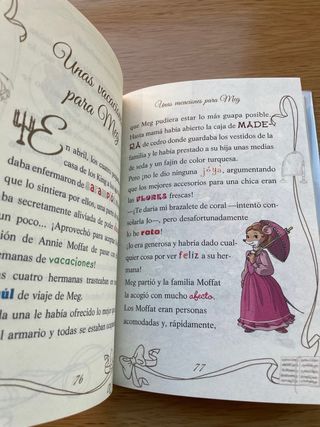 Unas
para Meg
En abril, los
casa de los King
daba enfermaron de
que lo sintiera por ellos, una
ba secretamente aliviada de
un poco... ¡Aprovechó para
ción de Annie Moffat de pasar
hermanas de vacaciones!
us cuatro hermanas trasteaban en
úl de viaje de Meg.
da una le había ofrecido lo
l armario y todas se estaban
76
Unas vacaciones para Meg
que Meg pudiera estar lo más guapa posible.
Hasta mamá había abierto la caja de MADE-
RA de cedro donde guardaba los vestidos de la
familia y le había prestado a su hija unas medias
de seda y un fajín de color turquesa.
Pero ¡no le dio ninguna joya, argumentando
que los mejores accesorios para una chica eran
las FLORES frescas!
—¡Te daría mi brazalete de coral —intentó con-
solarla Jo—, pero desafortunadamente
lo he roto!
¡Jo era generosa y habría dado cual-
quier cosa por ver feliz a su her-
mana!
Meg partió y la familia Moffat
la acogió con mucho afecto.
Los Moffat eran personas
acomodadas y, rápidamente,
77